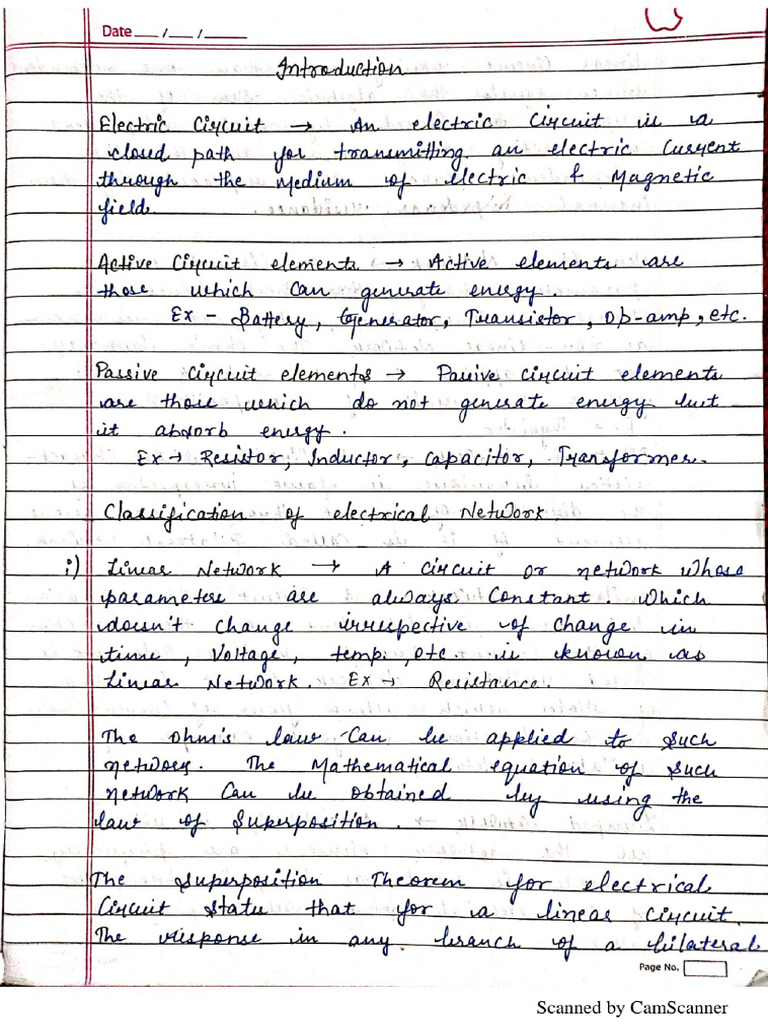 Date __ / __ / ____
Introduction
Electric Circuit → An electric circuit is a
closed path for transmitting an electric current
through the medium of electric & Magnetic
field.
Active Circuit elements → Active elements are
those which can generate energy.
Ex - Battery, Generator, Transistor, Op-amp, etc.
Passive circuit elements → Passive circuit elements
are those which do not generate energy but
it absorb energy.
Ex → Resistor, Inductor, Capacitor, Transformer.
Classification of electrical Network.
i) Linear Network → A circuit or network whose
parameters are always constant. Which
doesn't change irrespective of change in
time, Voltage, temp. , etc. is known as
Linear Network. Ex → Resistance.
The ohm's law can be applied to such
network. The Mathematical equation of such
network can be obtained by using the
law of Superposition.
The superposition Theorem for electrical
Circuit state that for a linear circuit.
The response in any branch of a bilateral
Page No.
Scanned by CamScanner